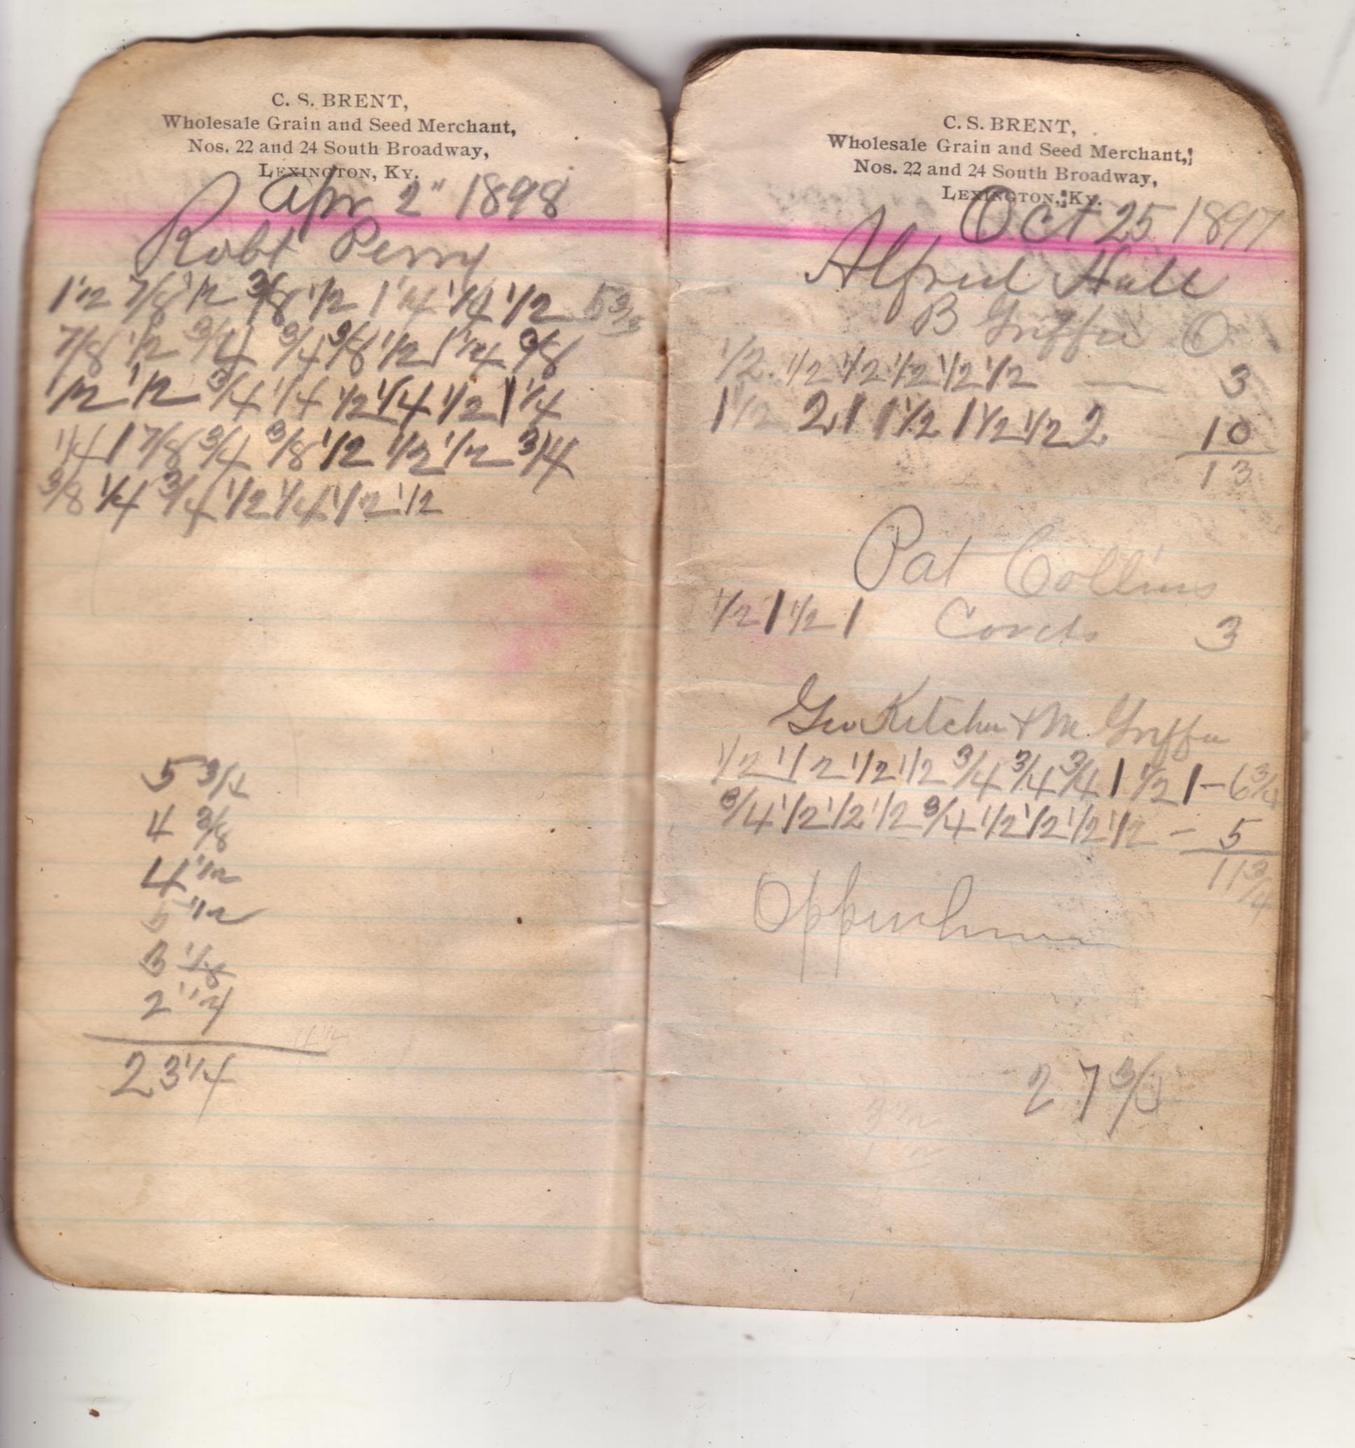 C. S. BRENT,
Wholesale Grain and Seed Merchant,
Nos. 22 and 24 South Broadway,
LEXINGTON, KY.
Apr 2" 1898
Robt Perry
1 1/2 7/8 1/2 3/8 1/2 1 1/4 1/4 1/2
7/8 1/2 3/4 3/4 3/8 1/2 1 1/4 3/8
1/2 1/2 3/4 1/4 1/2 1/4 1/2 1 1/4
1/4 1 7/8 3/4 3/8 1/2 1/2 1/2 3/4
3/8 1/4 3/4 1/2 1/4 1/2 1/2
5 3/4
4 3/8
4 1/2
5 1/2
3 1/8
2 1/4
23 1/4
C. S. BRENT,
Wholesale Grain and Seed Merchant,
Nos. 22 and 24 South Broadway,
LEXINGTON, KY.
Oct 25 1897
Alfred Hall
B Griffin O
1/2 1/2 1/2 1/2 1/2 1/2 — 3
1 1/2 2 1 1 1/2 1 1/2 1/2 2 10
13
Pat Collins
1/2 1 1/2 1 Cords 3
Geo Kitchen & M Griffin
1/2 1/2 1/2 1/2 3/4 3/4 3/4 1 1/2 1 – 6 3/4
3/4 1/2 1/2 1/2 3/4 1/2 1/2 1/2 1/2 – 5
11 3/4
27 3/4